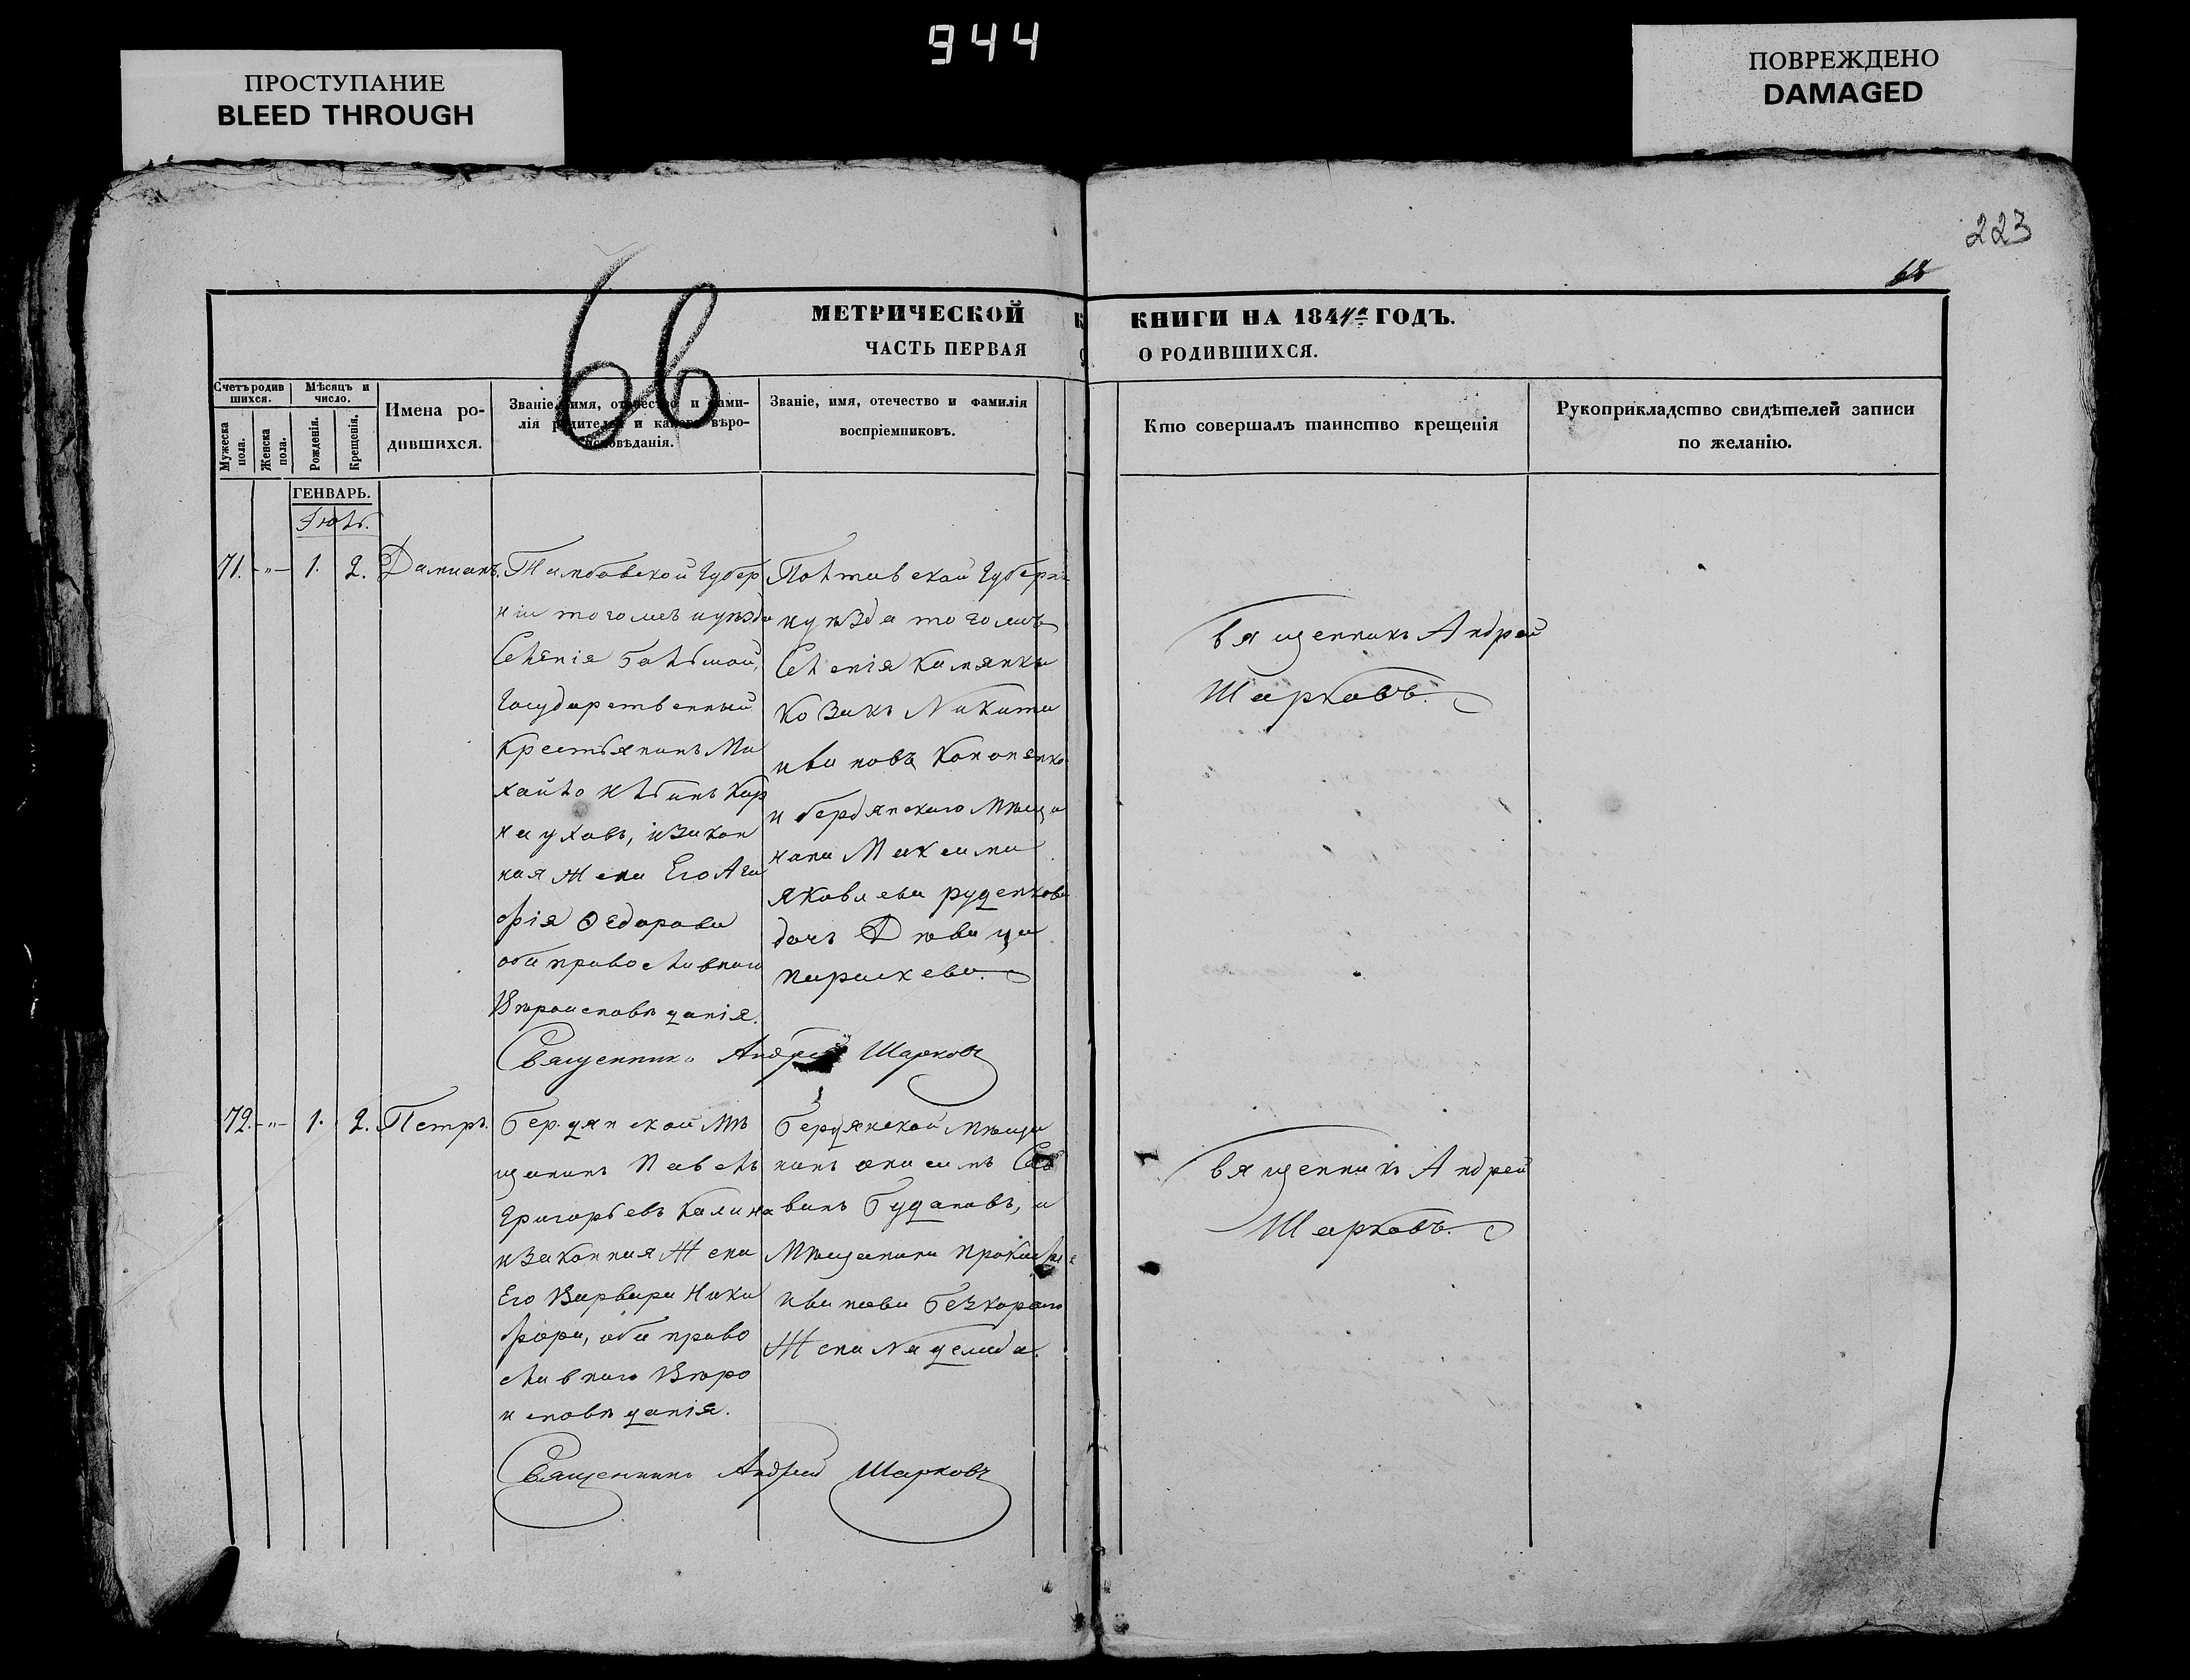 944
ПРОСТУПАНИЕ
BLEED THROUGH
ПОВРЕЖДЕНО
DAMAGED
223
68
66
МЕТРИЧЕСКОЙ
ЧАСТЬ ПЕРВАЯ
КНИГИ НА 1844й ГОДЪ.
О РОДИВШИХСЯ.
Счетъ родив
шихся.
Мужеска
пола.
Женска
пола.
Мѣсяцъ и
число.
Рожденія.
Крещенія.
Имена ро-
дившихся.
Званіе, имя, отечество и фами-
лія родителей и какого вѣро-
исповѣданія.
Званіе, имя, отечество и фамилія
воспріемниковъ.
Кто совершалъ таинство крещенія
Рукоприкладство свидѣтелей записи
по желанію.
ГЕНВАРЬ.
Іюль.
71. -"- 1. 2. Даміанъ.
Тамбовской Губер
ніи тогожъ иуезда
Селенія
Государственный
Крестьянинъ Ми
хайло Ильинъ Кар
науховъ, изакон
ная Жена Его Ага
фія Ѳедорова
оба православнаго
Вѣроисповѣданія.
Полтавской Губерніи
иуѣзда тогожъ
Селенія Камянки
Козакъ Никита
Ивановъ Кононенко
и бердянскаго Мѣща
нина Максима
Яковлева руденкова
дочь Дѣвица
параскева.
Священникъ Андрей Шарковъ
Священникъ Андрей
Шарковъ.
72. -"- 1. 2. Петръ.
бердянской Мѣ
щанинъ Павелъ
Григорьевъ Калина
изаконная Жена
Его Варвара Ники
фора, оба право
славнаго Вѣро
исповѣданія.
бердянской Мѣща
нинъ Онисимъ Сав
винъ Будановъ, и
Мѣщанина Прокофія
Иванова безкораго
Жена
Священникъ Андрей Шарковъ
Священникъ Андрей
Шарковъ.